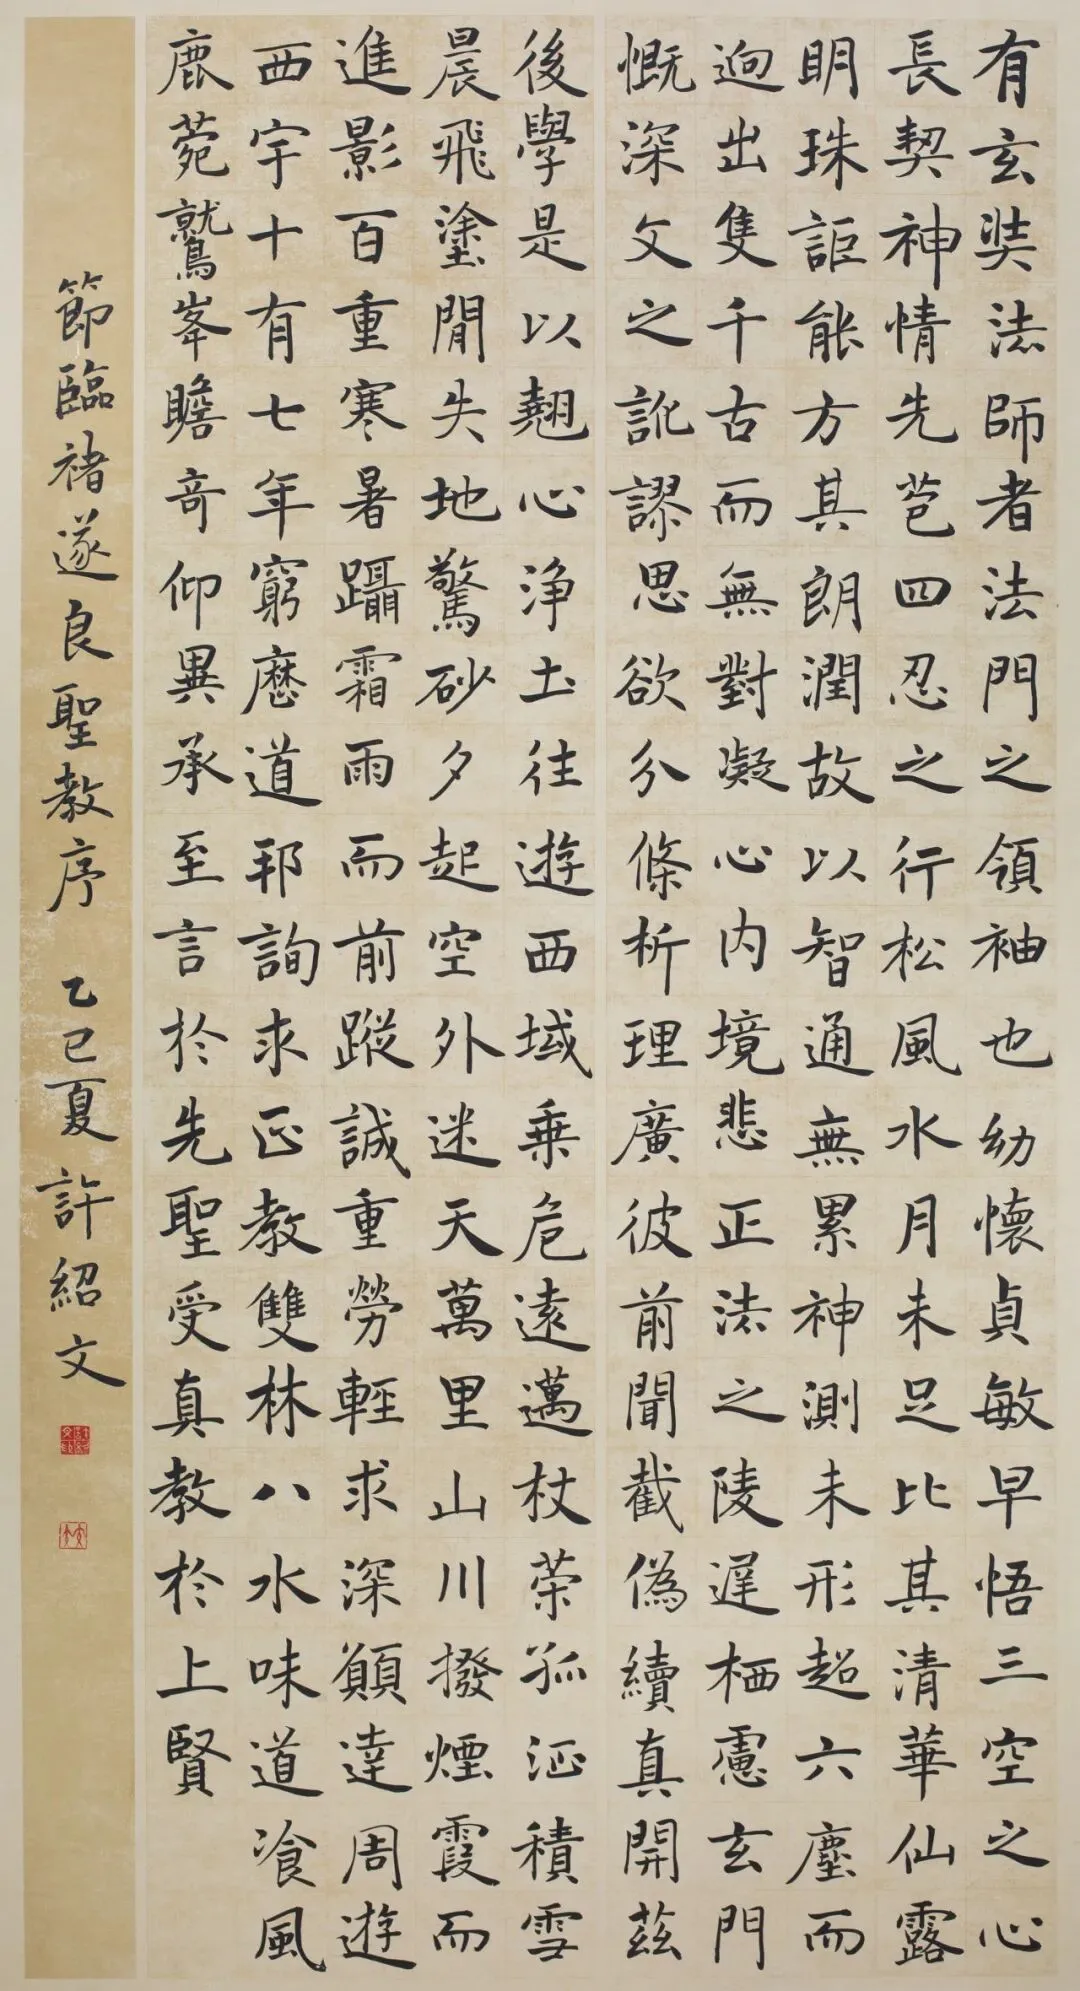 有玄奘法師者法門之領袖也幼懷貞敏早悟三空之心
長契神情先苞四忍之行松風水月未足比其清華仙露
明珠詎能方其朗潤故以智通無累神測未形超六塵而
迥出隻千古而無對凝心内境悲正法之陵遲栖慮玄門
慨深文之訛謬思欲分條析理廣彼前聞截偽續真開茲
後學是以翹心淨土往遊西域乗危遠邁杖策孤征積雪
晨飛塗閒失地驚砂夕起空外迷天萬里山川撥煙霞而
進影百重寒暑躡霜雨而前蹤誠重勞輕求深願達周遊
西宇十有七年窮歷道邦詢求正教雙林八水味道飡風
鹿菀鷲峯瞻奇仰異承至言於先聖受真教於上賢
節臨褚遂良聖教序 乙巳夏 許紹文